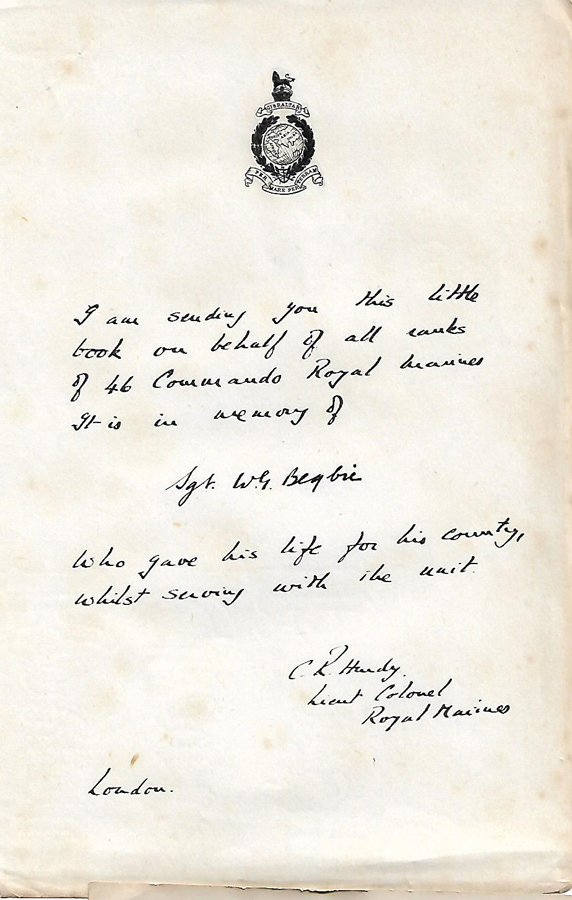 GIBRALTAR
PER MARE PER TERRAM
I am sending you this little
book on behalf of all ranks
of 46 Commando Royal Marines
It is in memory of
Sgt. W.G. Begbie
Who gave his life for his country,
whilst serving with the unit.
C. R. Hardy.
Lieut Colonel
Royal Marines
London.